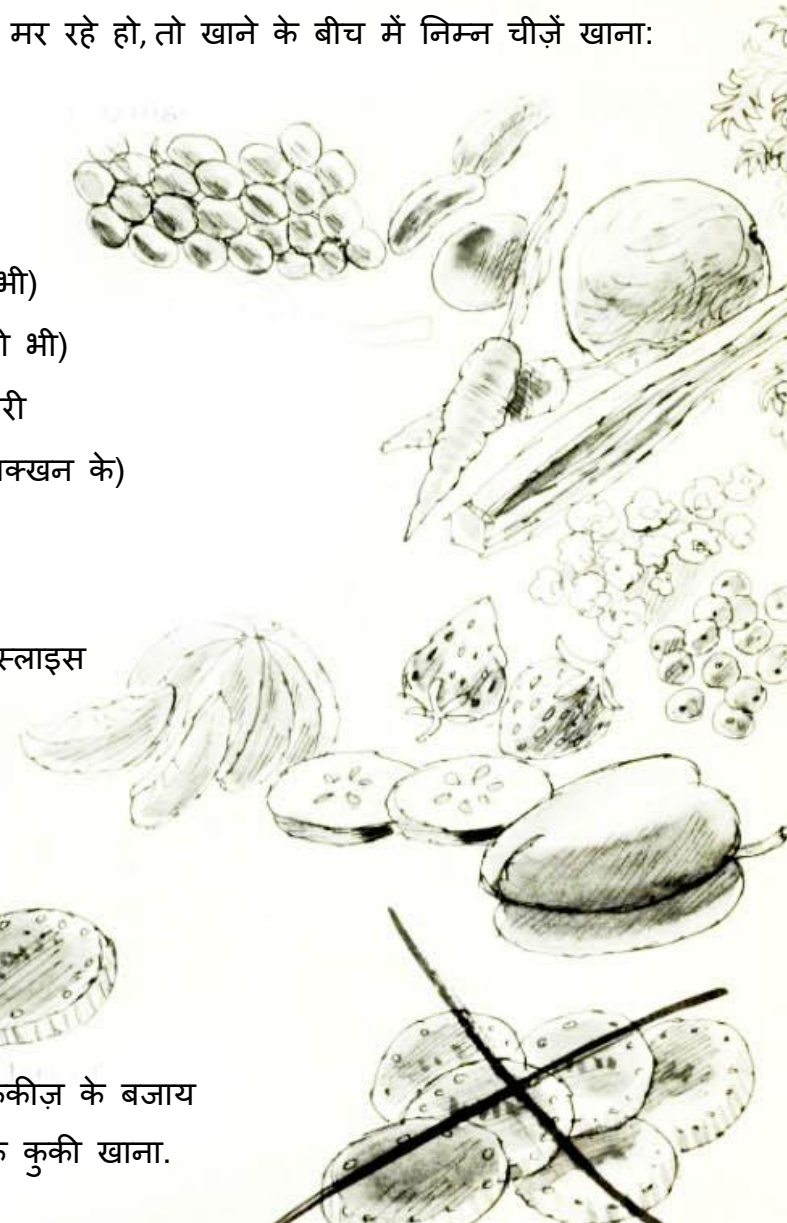 मर रहे हो, तो खाने के बीच में निम्न चीज़ें खाना:
भी)
भी)
री
के)
स्लाइस
के बजाय
कुकी खाना.